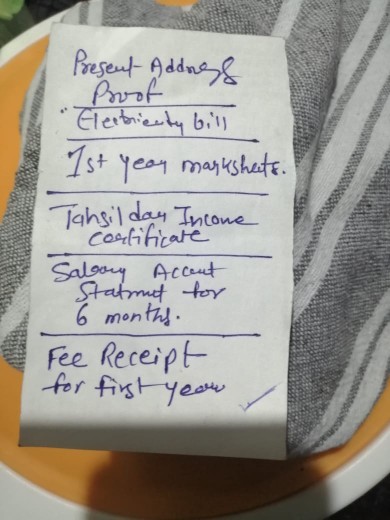 Present Address
Proof
Electricity bill
1st year marksheets.
Tahsildar Income
certificate
Salary Account
Statmnt for
6 months.
Fee Receipt
for first year